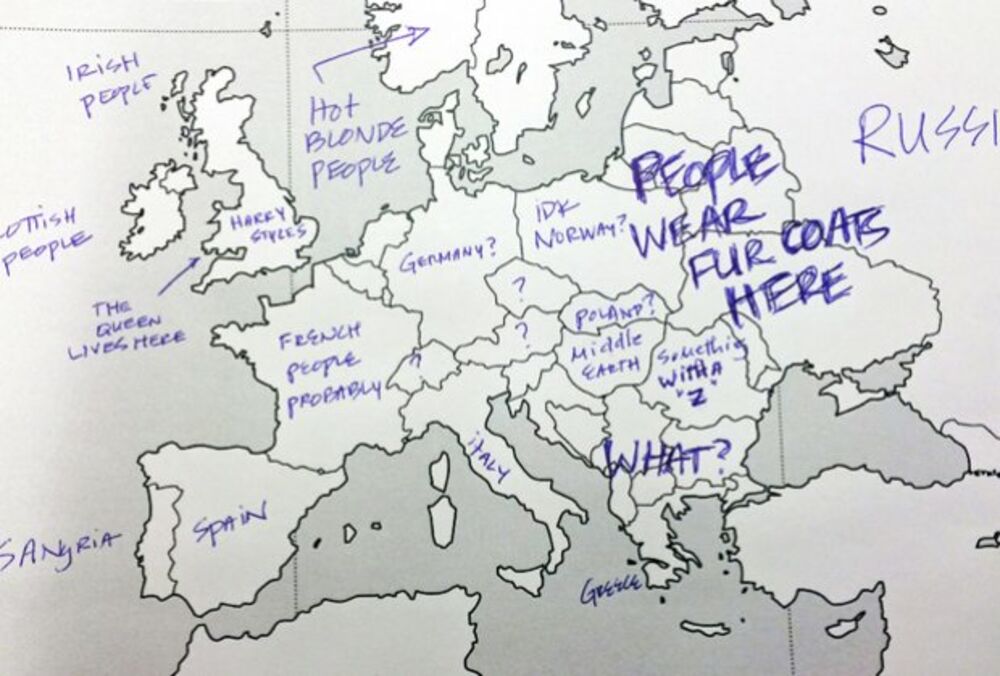 IRISH
PEOPLE
HOT
BLONDE
PEOPLE
RUSSI
OTTISH
PEOPLE
HARRY
STYLES
THE
QUEEN
LIVES HERE
GERMANY?
IDK
NORWAY?
PEOPLE
WEAR
FUR COATS
HERE
?
?
?
POLAND?
MIDDLE
EARTH
SOMETHING
WITH A
"Z"
FRENCH
PEOPLE
PROBABLY
WHAT?
ITALY
SPAIN
SANGRIA
GREECE